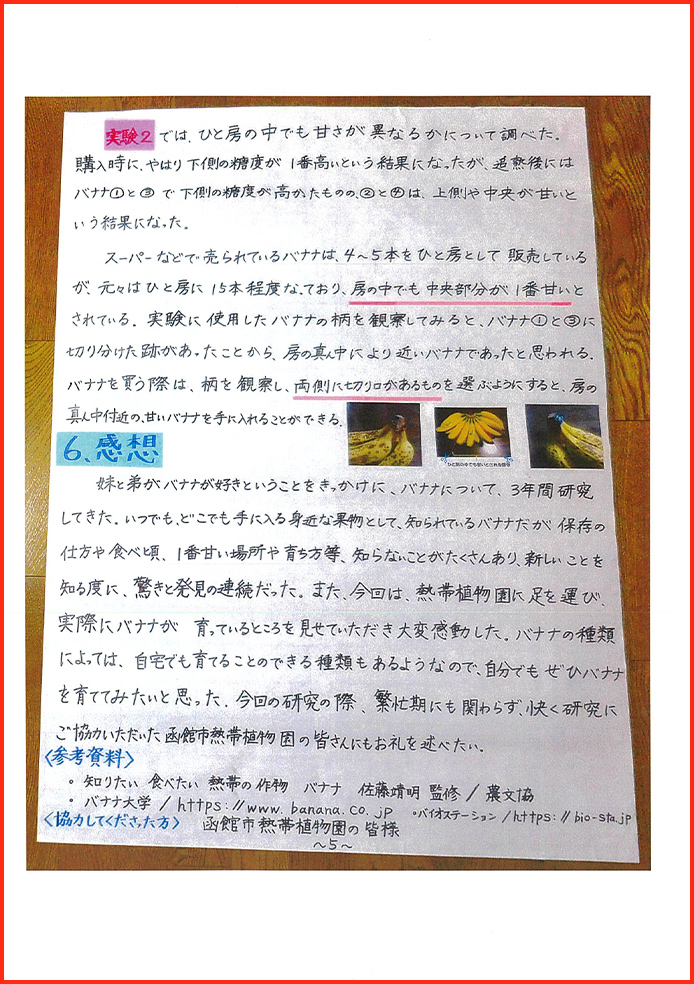 実験2 では、ひと房の中でも甘さが異なるかについて調べた。
購入時に、やはり下側の糖度が1番高いという結果になったが、追熟後には
バナナ①と③で下側の糖度が高かたものの、②と④は、上側や中央が甘いと
いう結果になった。
スーパーなどで売られているバナナは、4～5本をひと房として販売している
が、元々はひと房に15本程度なっており、房の中でも中央部分が1番甘いと
されている。実験に使用したバナナの柄を観察してみると、バナナ①と③に
切り分けた跡があったことから、房の真ん中により近いバナナであったと思われる。
バナナを買う際は、柄を観察し、両側に切り口があるものを選ぶようにすると、房の
真ん中付近の、甘いバナナを手に入れることができる。
ひと房の中でも甘いとされる部分
6、感想
妹と弟がバナナが好きということをきっかけに、バナナについて、3年間研究
してきた。いつでも、どこでも手に入る身近な果物として、知られているバナナだが保存の
仕方や食べ頃、1番甘い場所や育ち方等、知らないことがたくさんあり、新しいことを
知る度に、驚きと発見の連続だった。また、今回は、熱帯植物園に足を運び、
実際にバナナが育っているところを見せていただき大変感動した。バナナの種類
によっては、自宅でも育てることのできる種類もあるようなので、自分でもぜひバナナ
を育ててみたいと思った。今回の研究の際、繁忙期にも関わらず、快く研究に
ご協力いただいた函館市熱帯植物園の皆さんにもお礼を述べたい。
〈参考資料〉
・知りたい 食べたい 熱帯の作物 バナナ 佐藤靖明 監修/農文協
・バナナ大学/https://www.banana.co.jp ・バイオステーション/https://bio-sta.jp
〈協力してくださった方〉 函館市熱帯植物園の皆様
～5～